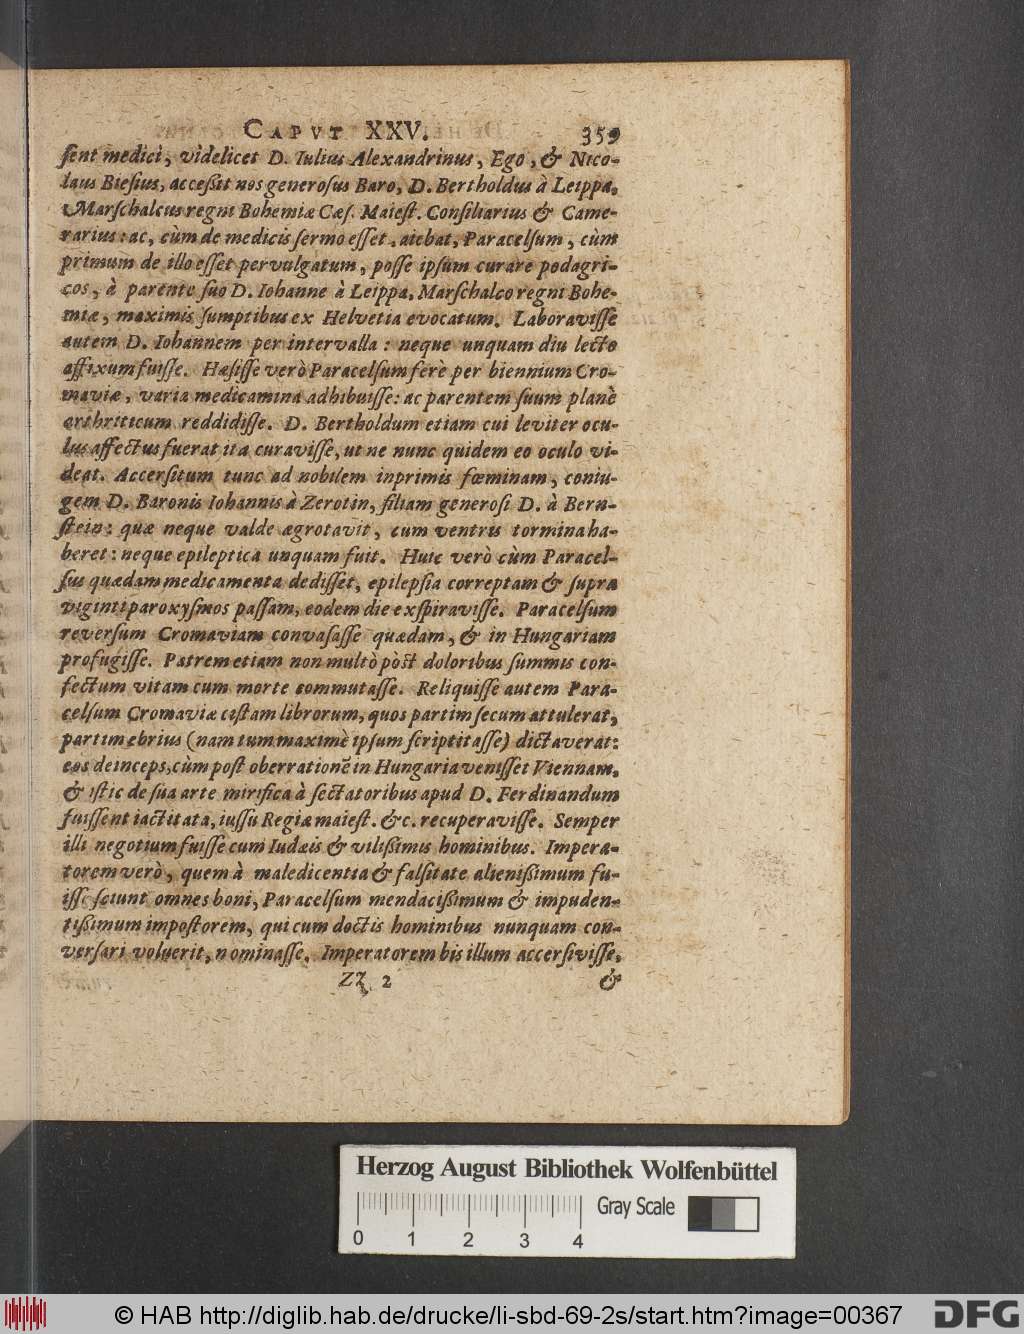 CAPVT XXV. 359
ſent medici, videlicet D. Iulius Alexandrinus, Ego, & Nico-
laus Bieſius, acceßit nos generoſus Baro, D. Bertholdus à Leippa,
Marſchalcus regni Bohemiæ Cæſ. Maieſt. Conſiliarius & Came-
rarius: ac, cùm de medicis ſermo eſſet, aiebat, Paracelſum, cùm
primum de illo eſſet pervulgatum, poſſe ipſum curare podagri-
cos, à parente ſuo D. Iohanne à Leippa, Marſchalco regni Bohe-
miæ, maximis ſumptibus ex Helvetia evocatum. Laboraviſſe
autem D. Iohannem per intervalla: neque unquam diu lecto
affixum fuiſſe. Hæſiſſe verò Paracelſum ferè per biennium Cro-
maviæ, varia medicamina adhibuiſſe: ac parentem ſuum planè
arthriticum reddidiſſe. D. Bertholdum etiam cui leviter ocu-
lus affectus fuerat ita curaviſſe, ut ne nunc quidem eo oculo vi-
deat. Accerſitum tunc ad nobilem inprimis fœminam, coniu-
gem D. Baronis Iohannis à Zerotin, filiam generoſi D. à Bern-
ſtein: quæ neque valde ægrotavit, cum ventris tormina ha-
beret: neque epileptica unquam fuit. Huic verò cùm Paracel-
ſus quædam medicamenta dediſſet, epilepſia correptam & ſupra
viginti paroxyſmos paſſam, eodem die exſpiraviſſe. Paracelſum
reverſum Cromaviam convaſaſſe quædam, & in Hungariam
profugiſſe. Patrem etiam non multò pòſt doloribus ſummis con-
fectum vitam cum morte commutaſſe. Reliquiſſe autem Para-
celſum Cromaviæ ciſtam librorum, quos partim ſecum attulerat,
partim ebrius (nam tum maximè ipſum ſcriptitaſſe) dictaverat:
eos deinceps, cùm poſt oberrationē in Hungaria veniſſet Viennam,
& iſtic de ſua arte mirifica à ſectatoribus apud D. Ferdinandum
fuiſſent iactitata, iuſſu Regiæ maieſt. &c. recuperaviſſe. Semper
illi negotium fuiſſe cum Iudæis & vilißimis hominibus. Impera-
torem verò, quem à maledicentia & falſitate alienißimum fu-
iſſe ſciunt omnes boni, Paracelſum mendacißimum & impuden-
tißimum impoſtorem, qui cum doctis hominibus nunquam con-
verſari voluerit, nominaſſe. Imperatorem bis illum accerſiviſſe,
Zz 2 &
Herzog August Bibliothek Wolfenbüttel
Gray Scale
0 1 2 3 4
© HAB http://diglib.hab.de/drucke/li-sbd-69-2s/start.htm?image=00367 DFG